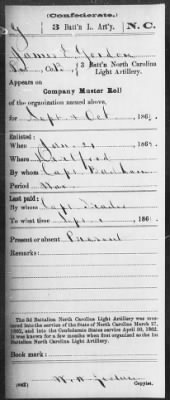 (Confederate.)
G 3 Batt'n L. Art'y. N.C.
James L. Gordon
3 Batt'n North Carolina
Light Artillery.
Appears on
Company Muster Roll
of the organization named above,
for Sept & Oct, 186
Enlisted:
When Jan. 186
Where Hertford
By whom Capt.
Period War
Last paid:
By whom Capt.
To what time Sept. 1, 186
Present or absent Present
Remarks:
The 3d Battalion North Carolina Light Artillery was mustered
into the service of the State of North Carolina March 17,
1862, and into the Confederate States service April 30, 1862.
It was known for a few months when first organized as the 1st
Battalion North Carolina Light Artillery.
Book mark:
(642)
Copyist.